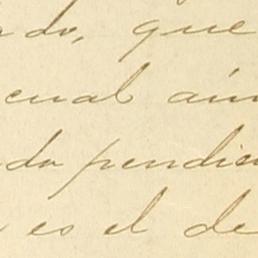 do, que
cual aún
do pendien
es el de